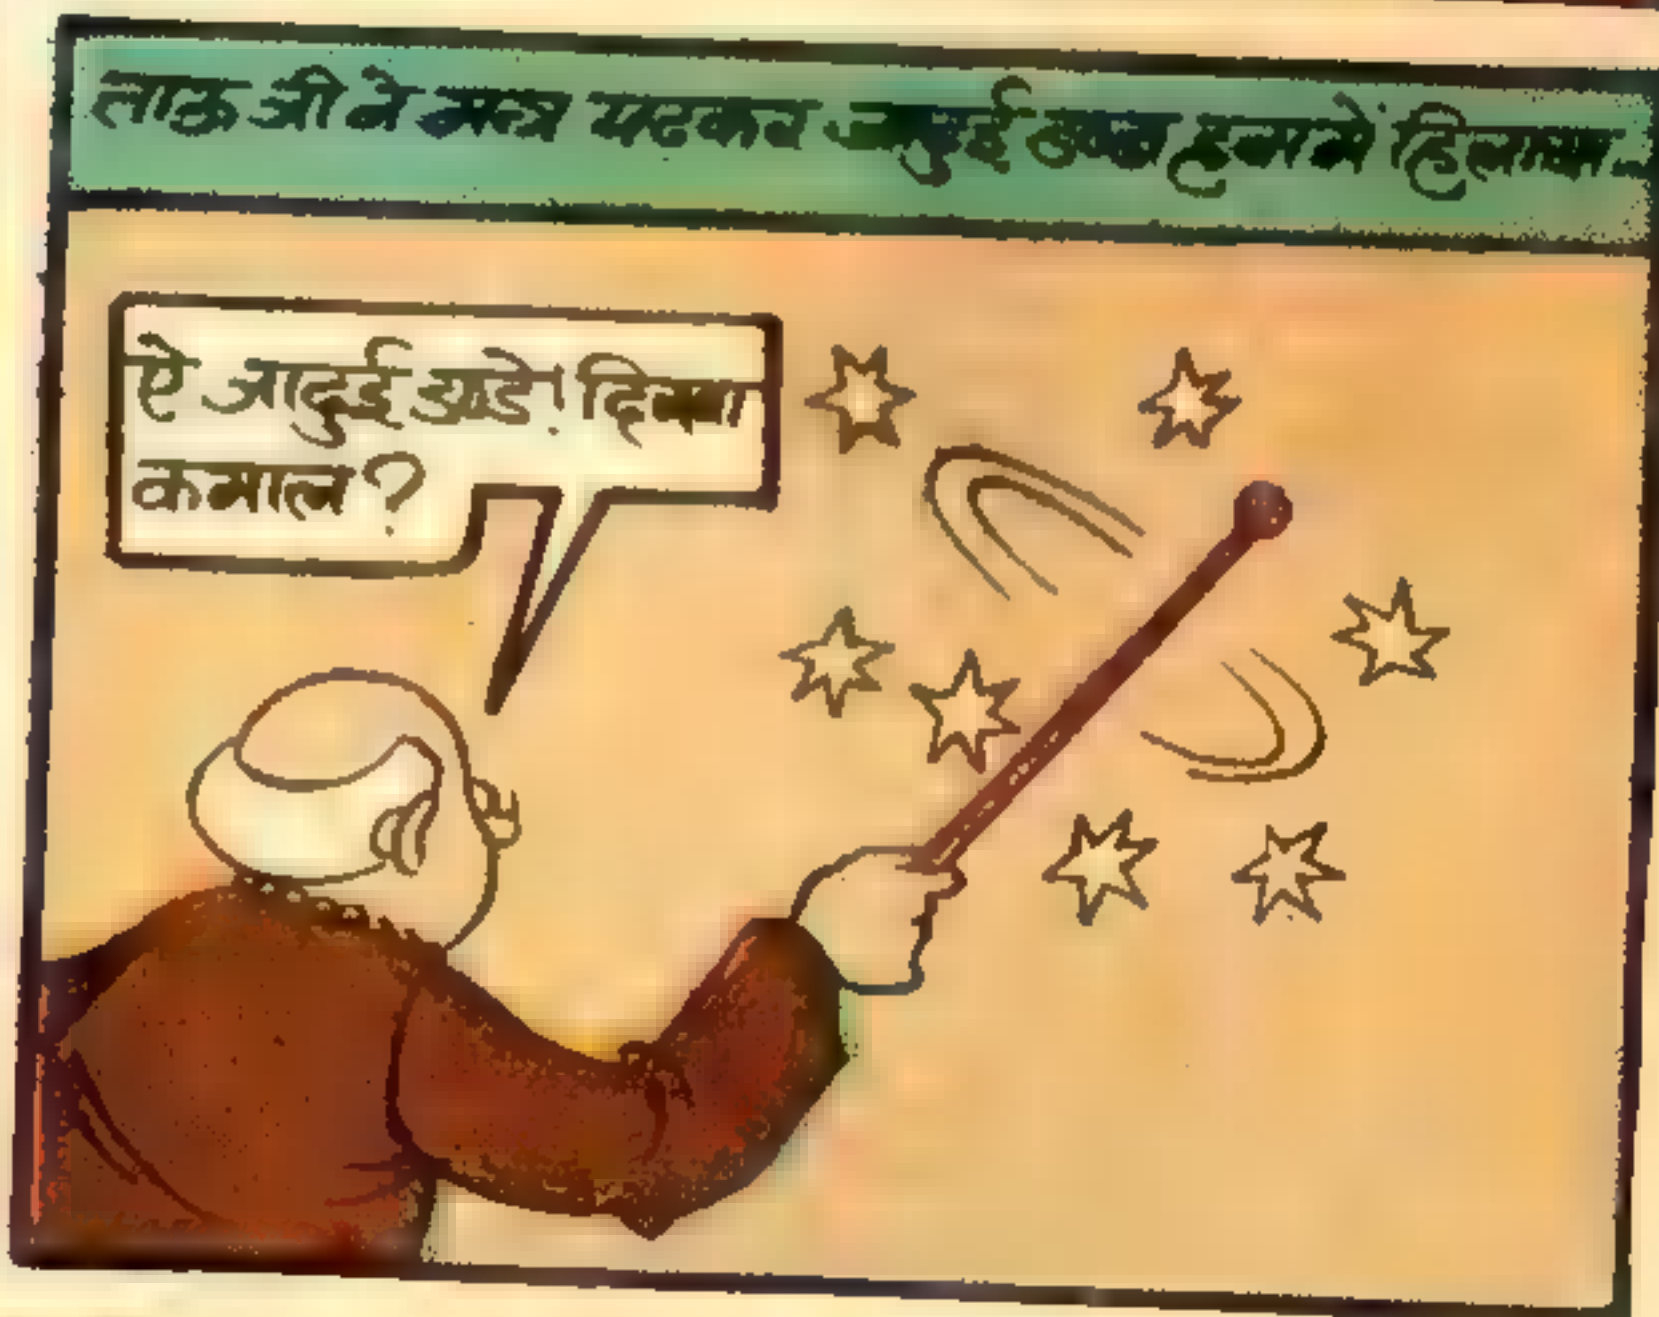 ताऊ जी ने मन्त्र पढकर जादुई डण्डा हवा में हिलाया-
ऐ जादुई डण्डे! दिखा
कमाल?